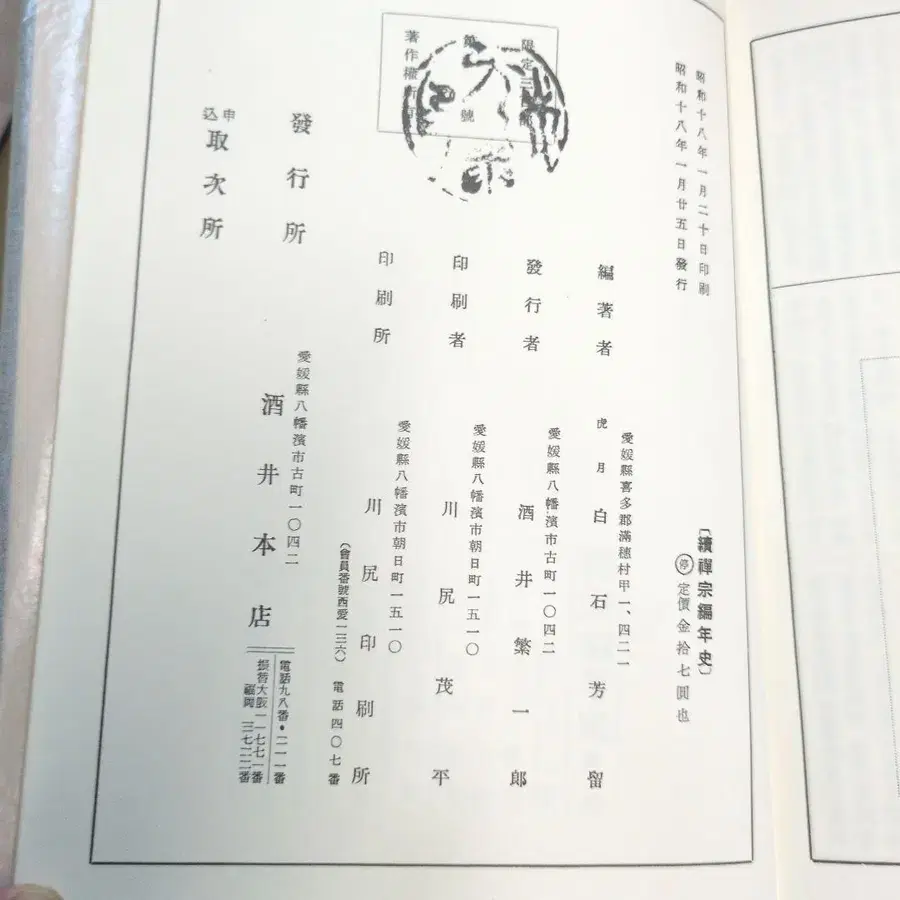 昭和十八年一月二十日印刷
昭和十八年一月廿五日發行
〔續禪宗編年史〕
停 定價金拾七圓也
限定三
號
著作權所
編著者
愛媛縣喜多郡滿穗村甲一、四二一
虎月 白石芳留
發行者
愛媛縣八幡濱市古町一〇四二
酒井繁一郎
印刷者
愛媛縣八幡濱市朝日町一五一〇
川尻茂平
印刷所
愛媛縣八幡濱市朝日町一五一〇
川尻印刷所
（會員番號西愛一三六） 電話四〇七番
發行所
申込取次所
愛媛縣八幡濱市古町一〇四二
酒井本店
電話九八番・二一一番
振替大阪一一七七一番
福岡 三七二二番